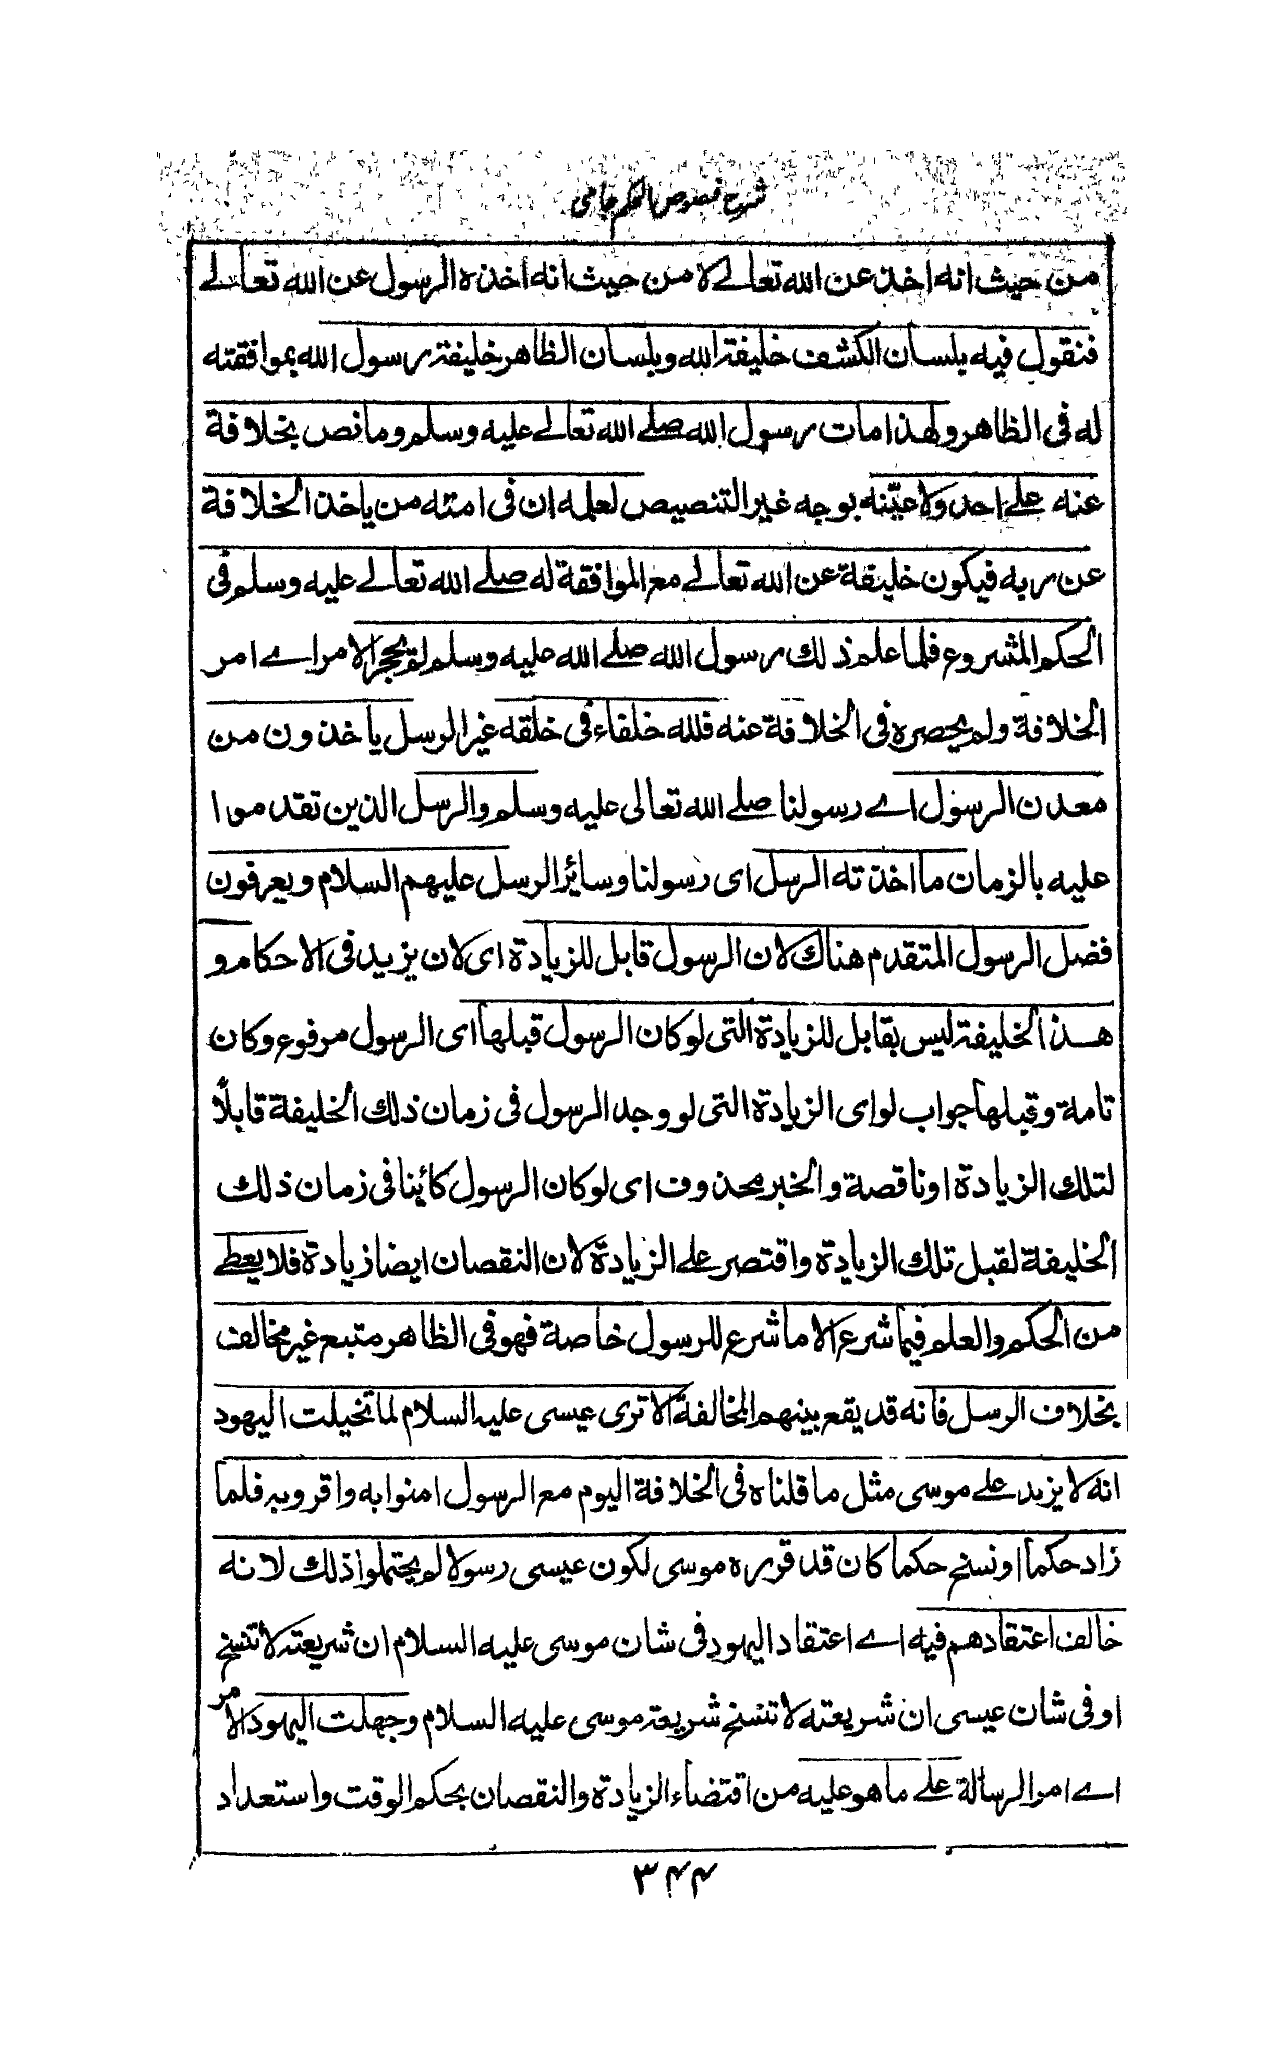 شرح فصوص الحكم جامى
من حيث انه اخذ عن الله تعالے لا من حيث انه اخذه الرسول عن الله تعالے
فنقول فيه بلسان الكشف خليفة الله وبلسان الظاهر خليفة رسول الله بموافقته
له فى الظاهر ولهذا مات رسول الله صلے الله تعالے عليه وسلم وما نص بخلافة
عنه علے احد ولا عيّنه بوجه غير التنصيص لعلمه ان فى امته من ياخذ الخلافة
عن ربه فيكون خليفة عن الله تعالے مع الموافقة له صلے الله تعالے عليه وسلم فى
الحكم المشروع فلما علم ذلك رسول الله صلے الله عليه وسلم لم يحجر الامر اے امر
الخلافة ولم يحصره فى الخلافة عنه فلله خلفاء فى خلقه غير الرسل ياخذون من
معدن الرسول اے رسولنا صلے الله تعالى عليه وسلم والرسل الذين تقدموا
عليه بالزمان ما اخذته الرسل اى رسولنا وسائر الرسل عليهم السلام ويعرفون
فضل الرسول المتقدم هناك لان الرسول قابل للزيادة اى لان يزيد فى الاحكام و
هذا الخليفة ليس بقابل للزيادة التى لو كان الرسول قبلها اى الرسول مرفوع وكان
تامة وقبلها جواب لو اى الزيادة التى لو وجد الرسول فى زمان ذلك الخليفة قابلًا
لتلك الزيادة او ناقصة والخبر محذوف اى لو كان الرسول كائنا فى زمان ذلك
الخليفة لقبل تلك الزيادة واقتصر علے الزيادة لان النقصان ايضا زيادة فلا يعطے
من الحكم والعلم فيما شرع الا ما شرع للرسول خاصة فهو فى الظاهر متبع غير مخالف
بخلاف الرسل فانه قد يقع بينهم المخالفة الا ترى عيسى عليه السلام لما تخيلت اليهود
انه لا يزيد علے موسى مثل ما قلناه فى الخلافة اليوم مع الرسول امنوا به واقروبه فلما
زاد حكما او نسخ حكما كان قد قرره موسى لكون عيسى رسولا لم يحتملوا ذلك لانه
خالف اعتقادهم فيه اے اعتقاد اليهود فى شان موسى عليه السلام ان شريعته لا تنسخ
او فى شان عيسى ان شريعته لا تنسخ شريعة موسى عليه السلام وجهلت اليهود الامر
اے امر الرسالة علے ما هو عليه من اقتضاء الزيادة والنقصان بحكم الوقت واستعداد
٣٤٤